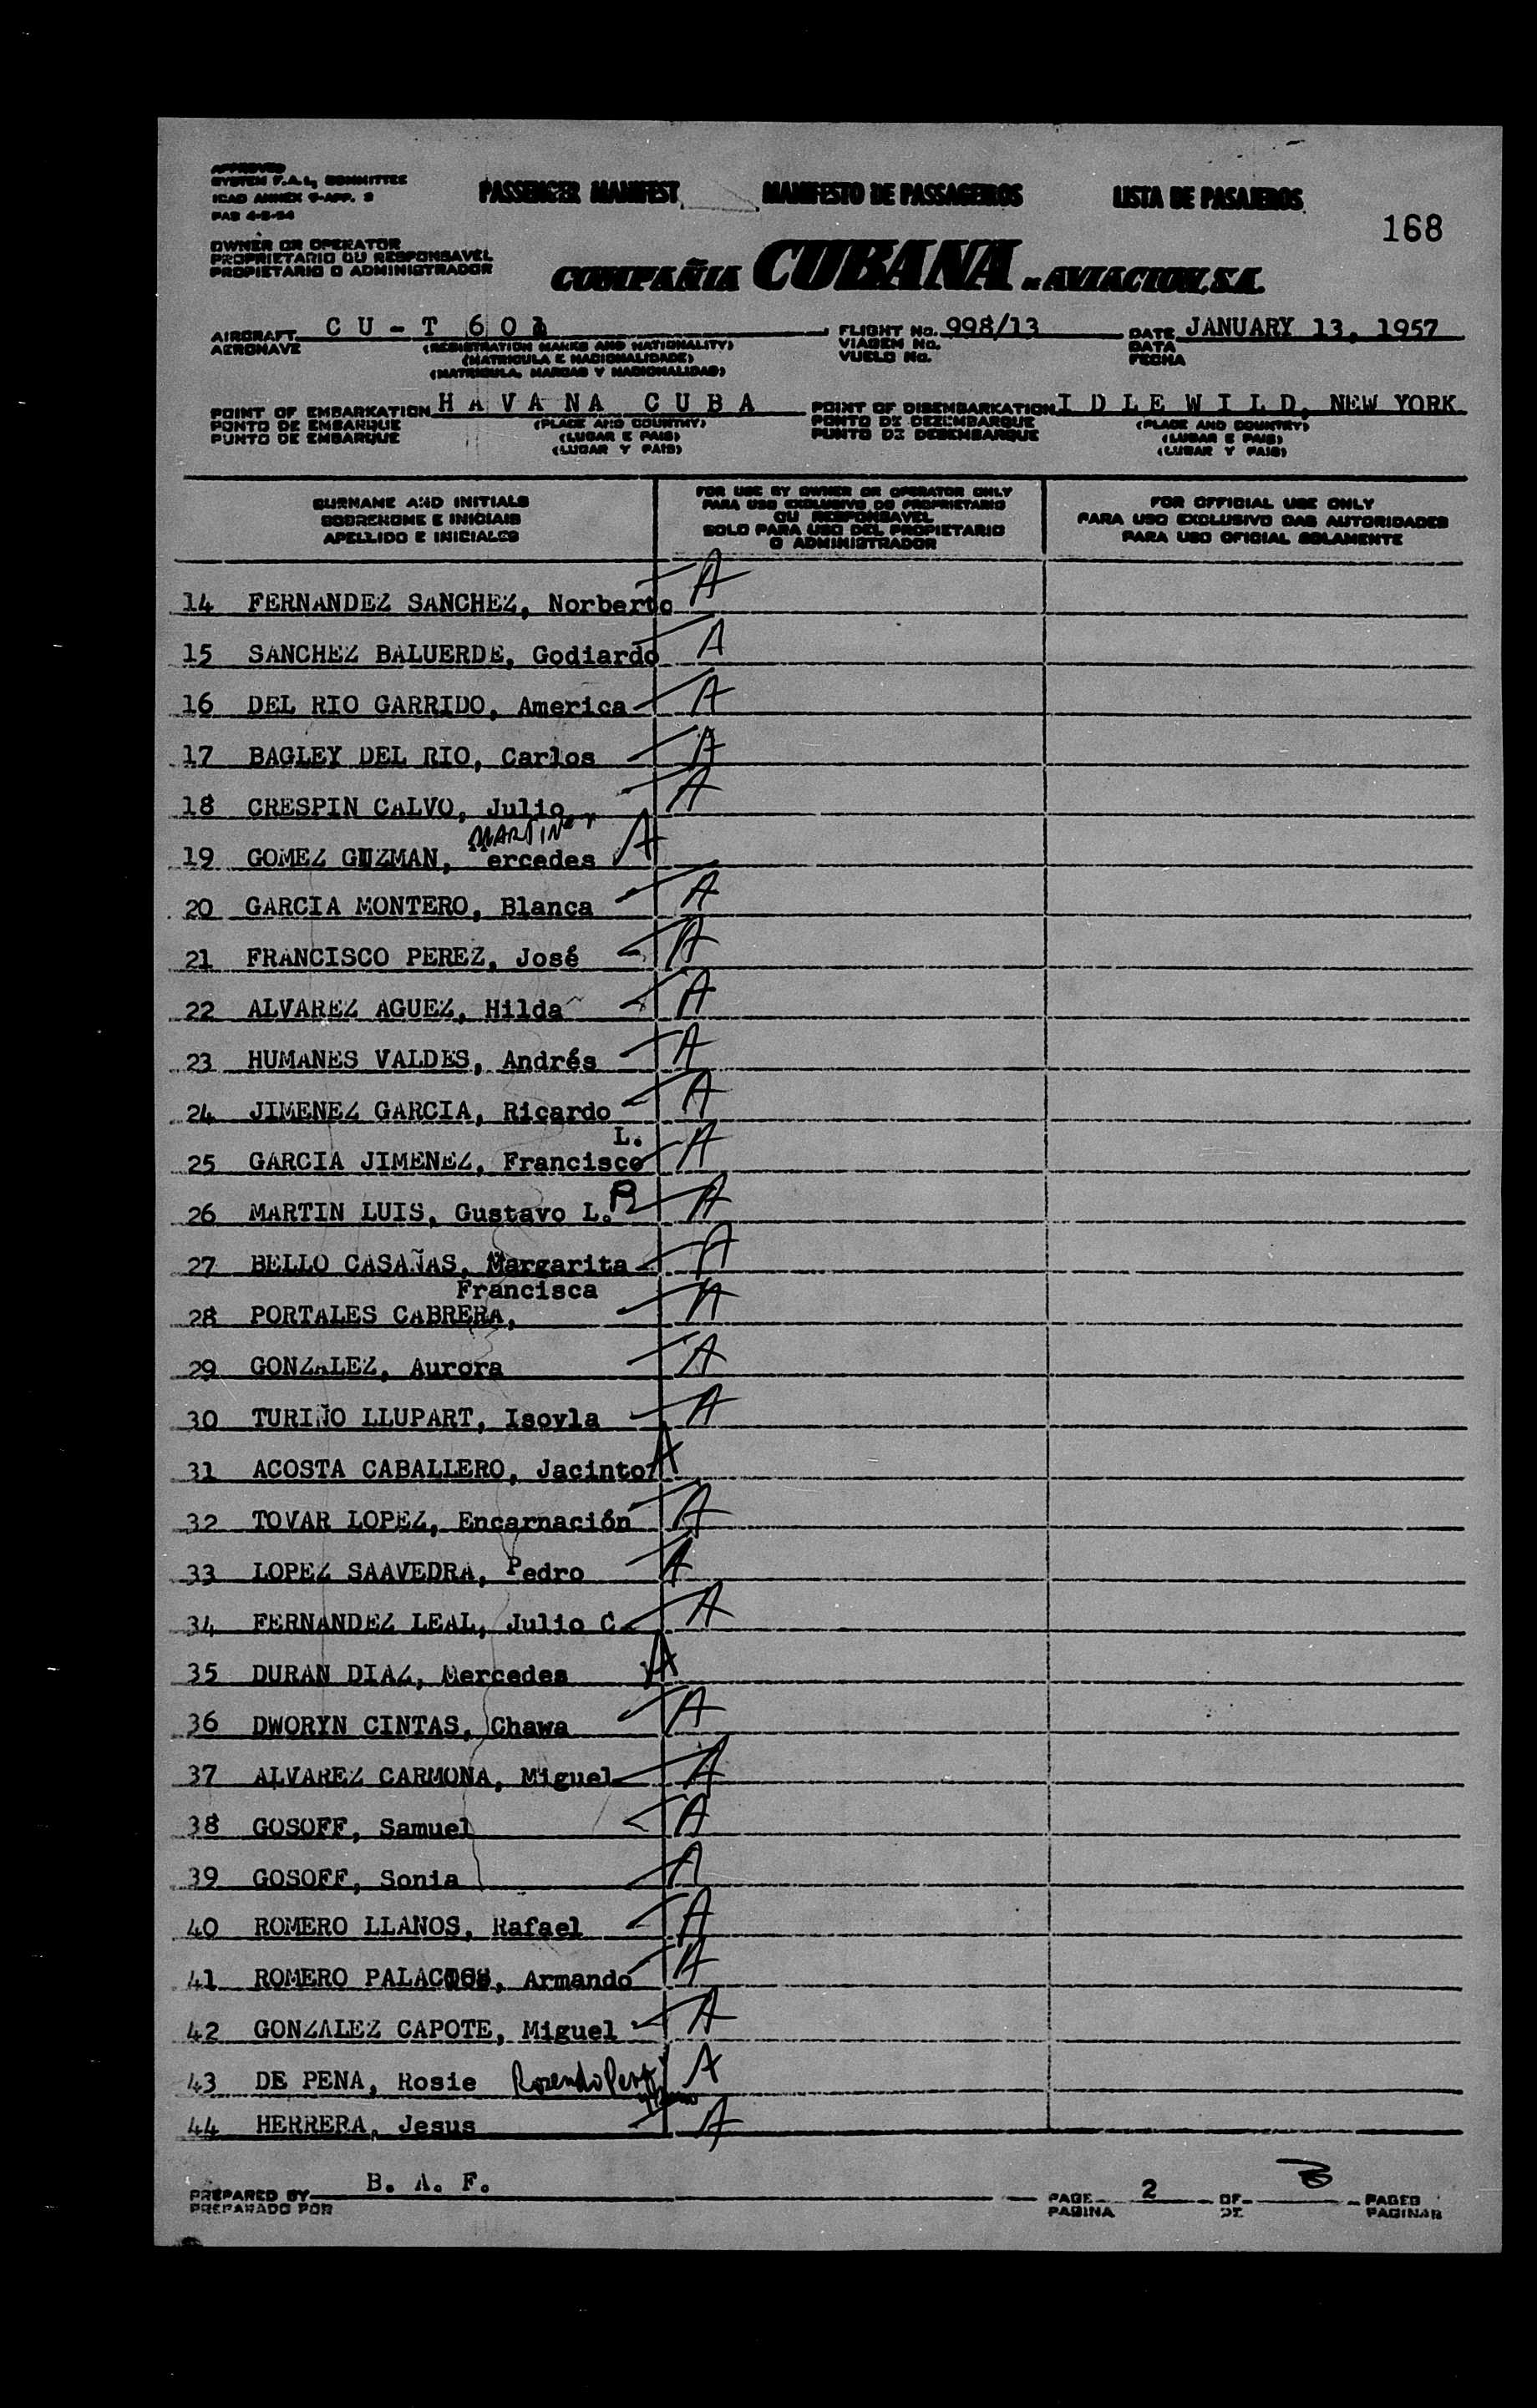 APPROVED
SYSTEM F.A.L, COMMITTEE
ICAO ANNEX 9-APP. 3
PAS 4-5-54
PASSENGER MANIFEST MANIFESTO DE PASSAGEIROS LISTA DE PASAJEROS
168
OWNER OR OPERATOR
PROPRIETARIO OU RESPONSAVEL
PROPIETARIO O ADMINISTRADOR
COMPAÑIA CUBANA DE AVIACION, S.A.
AIRCRAFT CU-T 601 FLIGHT No. 998/13 DATE JANUARY 13, 1957
AERONAVE (REGISTRATION MARKS AND NATIONALITY) VIAGEM No. DATA
(MATRICULA E NACIONALIDADE) VUELO No. FECHA
(MATRICULA, MARCAS Y NACIONALIDAD)
POINT OF EMBARKATION HAVANA CUBA POINT OF DISEMBARKATION IDLEWILD, NEW YORK
PONTO DE EMBARQUE (PLACE AND COUNTRY) PONTO DE DEZEMBARQUE (PLACE AND COUNTRY)
PUNTO DE EMBARQUE (LUGAR E PAIS) PUNTO DE DESEMBARQUE (LUGAR E PAIS)
(LUGAR Y PAIS) (LUGAR Y PAIS)
SURNAME AND INITIALS
SOBRENOME E INICIAIS
APELLIDO E INICIALES
FOR USE BY OWNER OR OPERATOR ONLY
PARA USO EXCLUSIVO DO PROPRIETARIO
OU RESPONSAVEL
SOLO PARA USO DEL PROPIETARIO
O ADMINISTRADOR
FOR OFFICIAL USE ONLY
PARA USO EXCLUSIVO DAS AUTORIDADES
PARA USO OFICIAL SOLAMENTE
14 FERNANDEZ SANCHEZ, Norberto A
15 SANCHEZ BALUERDE, Godiardo A
16 DEL RIO GARRIDO, America A
17 BAGLEY DEL RIO, Carlos A
18 CRESPIN CALVO, Julio A
MARTINEZ
19 GOMEZ GUZMAN, Mercedes A
20 GARCIA MONTERO, Blanca A
21 FRANCISCO PEREZ, José A
22 ALVAREZ AGUEZ, Hilda A
23 HUMANES VALDES, Andrés A
24 JIMENEZ GARCIA, Ricardo A
L.
25 GARCIA JIMENEZ, Francisco A
26 MARTIN LUIS, Gustavo L. R A
27 BELLO CASAÑAS, Margarita A
Francisca
28 PORTALES CABRERA, A
29 GONZALEZ, Aurora A
30 TURIÑO LLUPART, Isoyla A
31 ACOSTA CABALLERO, Jacinto A
32 TOVAR LOPEZ, Encarnación A
33 LOPEZ SAAVEDRA, Pedro A
34 FERNANDEZ LEAL, Julio C. A
35 DURAN DIAZ, Mercedes A
36 DWORYN CINTAS, Chawa A
37 ALVAREZ CARMONA, Miguel A
38 GOSOFF, Samuel A
39 GOSOFF, Sonia A
40 ROMERO LLANOS, Rafael A
41 ROMERO PALACIOS, Armando A
42 GONZALEZ CAPOTE, Miguel A
43 DE PENA, Rosie Rosendo A
44 HERRERA, Jesus A
PREPARED BY B. A. F. PAGE 2 OF 3 PAGES
PREPARADO POR PAGINA DE PAGINAS